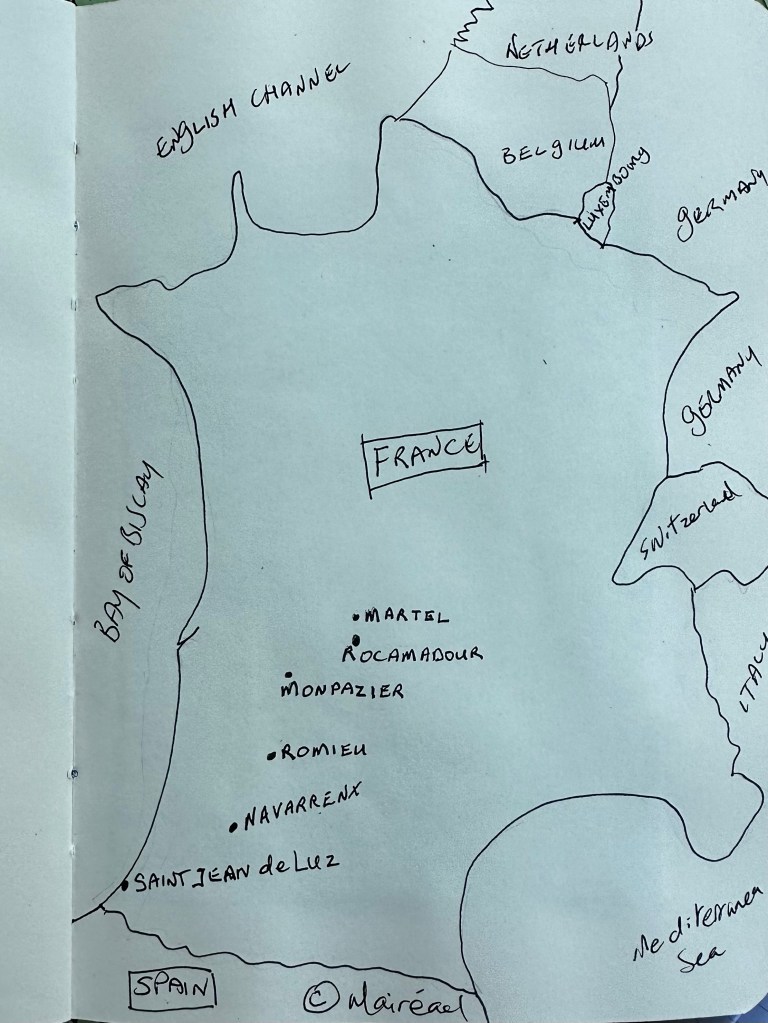 NETHERLANDS
ENGLISH CHANNEL
BELGIUM
LUXEMBOURG
GERMANY
GERMANY
FRANCE
Switzerland
BAY OF BISCAY
MARTEL
ROCAMADOUR
MONPAZIER
ITALY
ROMIEU
NAVARRENX
SAINT JEAN de LUZ
Mediterranea
Sea
SPAIN
© Mairéad